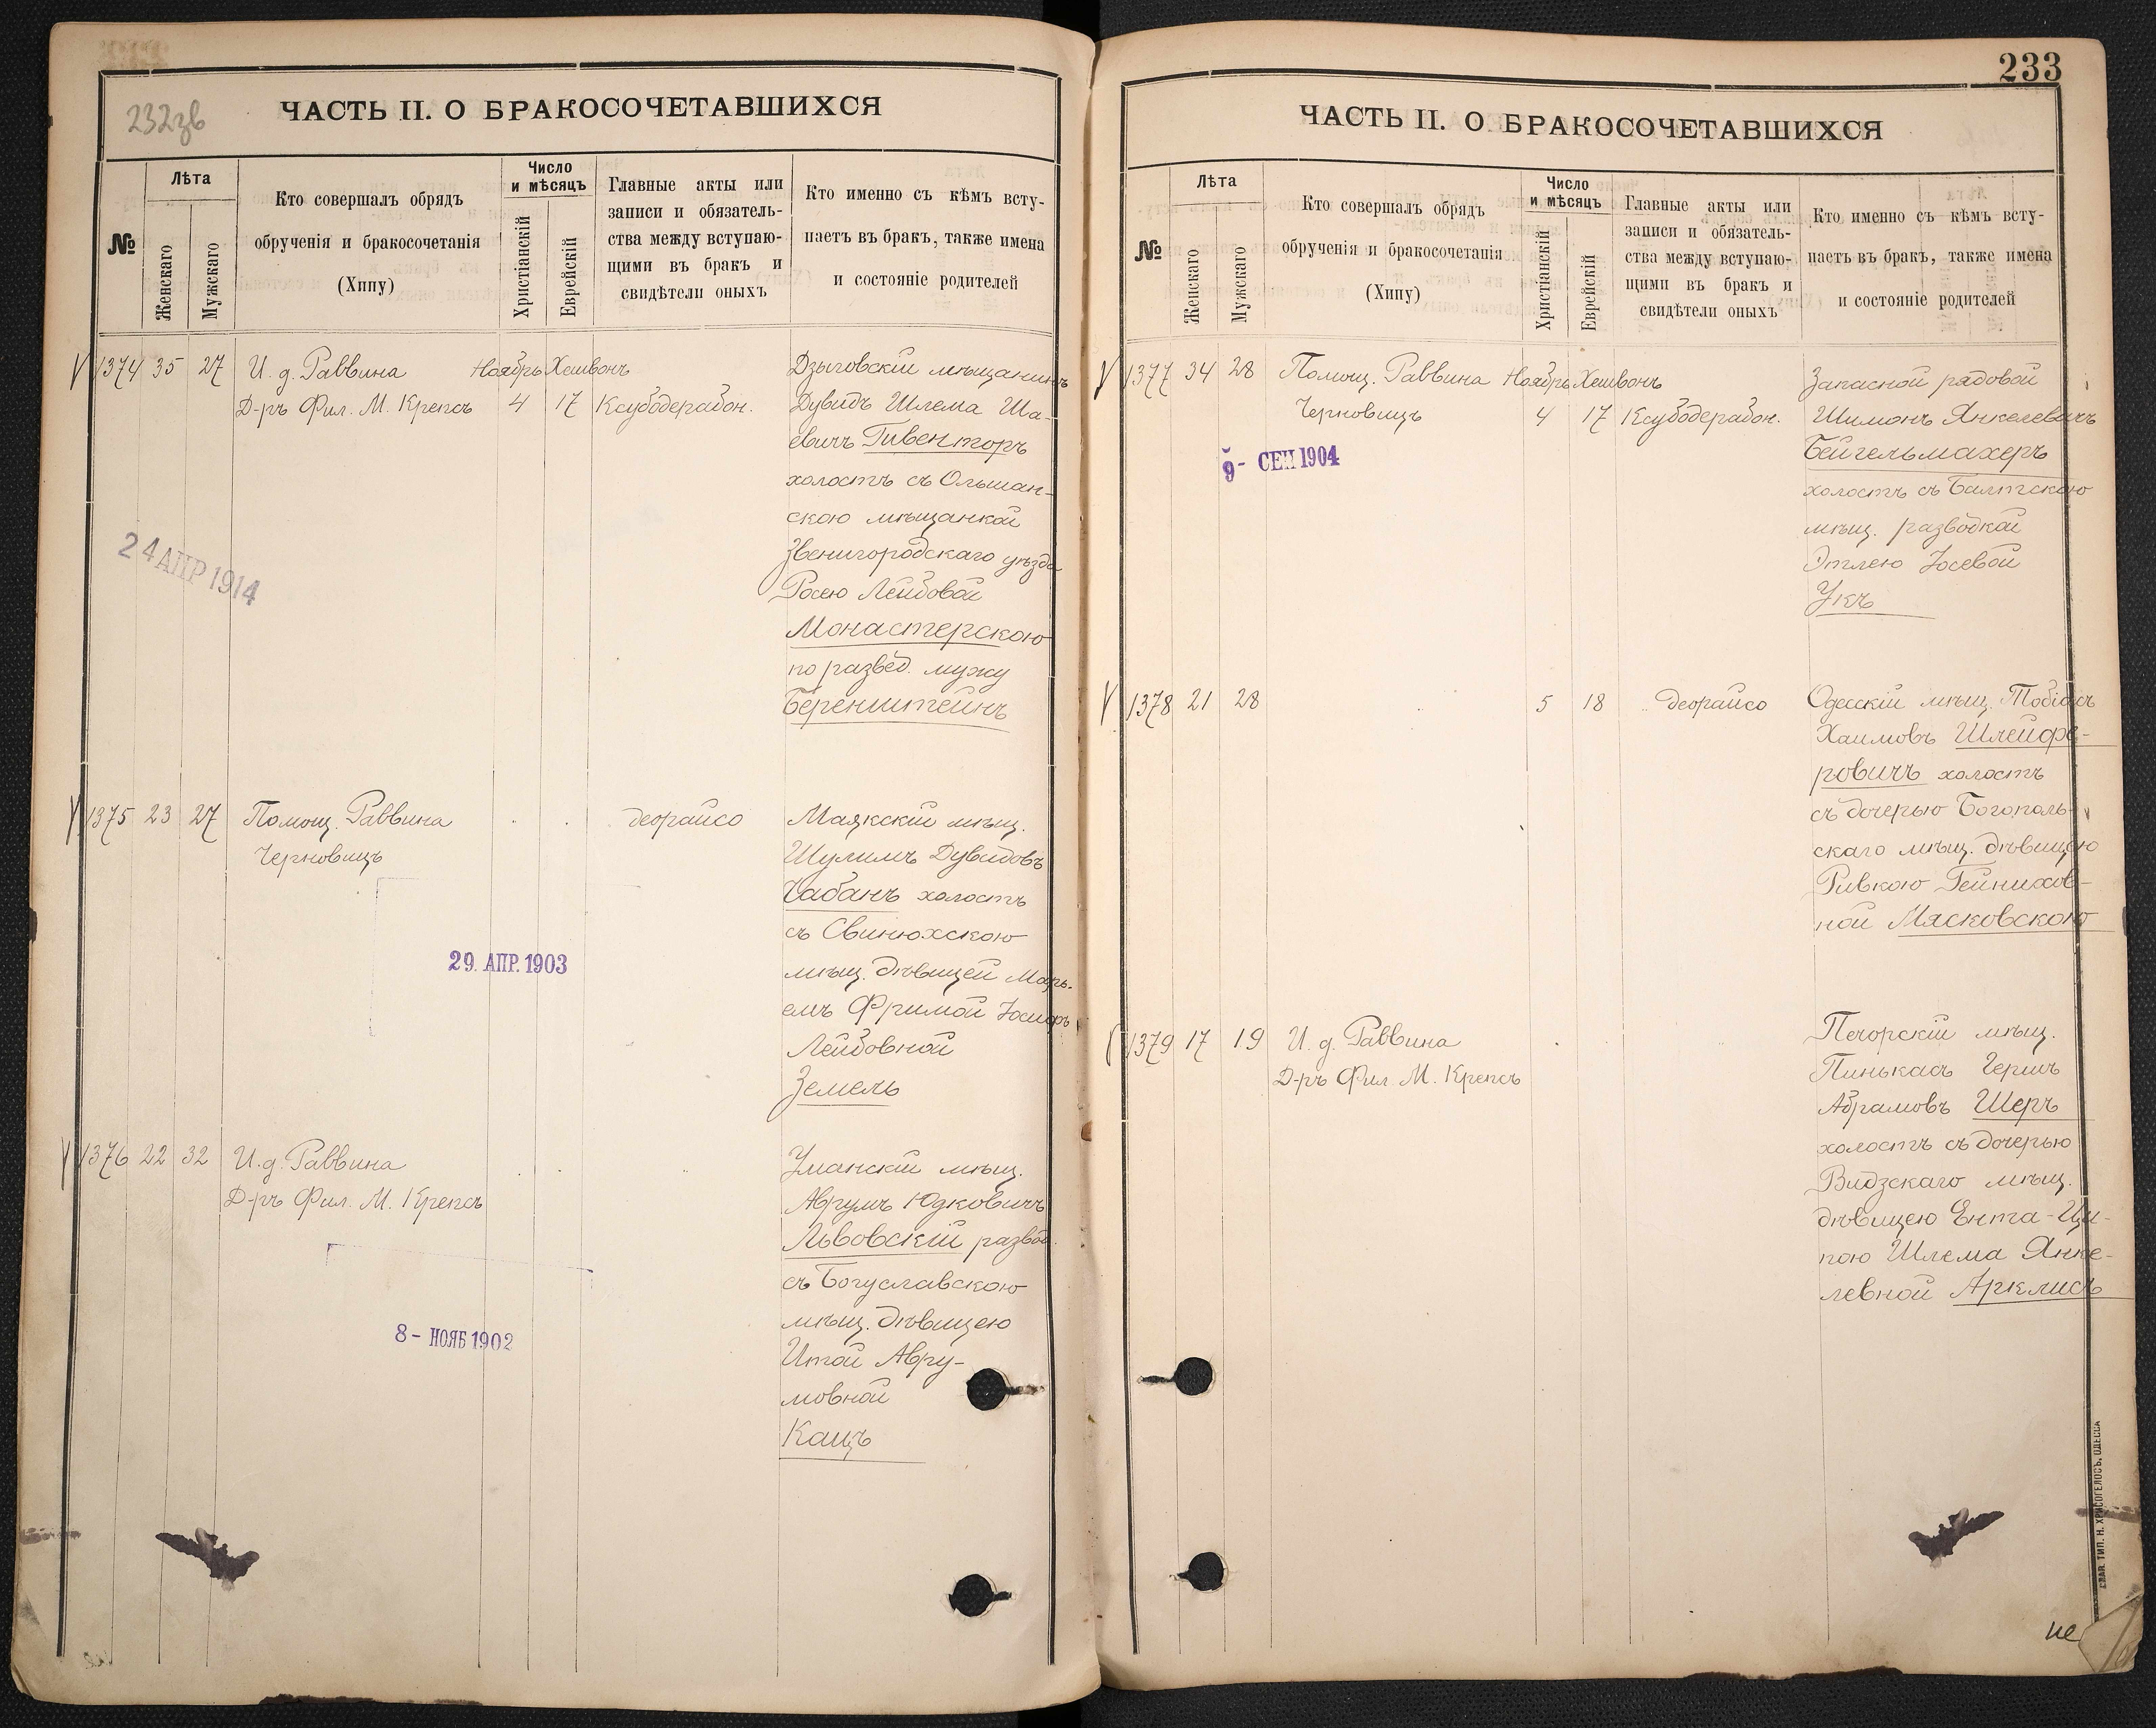 232зв
ЧАСТЬ II. О БРАКОСОЧЕТАВШИХСЯ
№
Лѣта
Женскаго
Мужскаго
Кто совершалъ обрядъ
обрученія и бракосочетанія
(Хипу)
Число
и мѣсяцъ
Христіанскій
Еврейскій
Главные акты или
записи и обязатель-
ства между вступаю-
щими въ бракъ и
свидѣтели оныхъ
Кто именно съ кѣмъ всту-
паетъ въ бракъ, также имена
и состояніе родителей
1374 35 27 И. д. Раввина Ноябрь Хешвонъ
Д-ръ Фил. М. Крепсъ 4 17 Ксубодерабон.
Дзыговскій мѣщанинъ
Дувидъ Шлема Ша-
евичъ Гивенторъ
холостъ съ Ольшан-
скою мѣщанкой
Звенигородскаго уѣзда
Росею Лейбовой
Монастерскою
по развед. мужу
Беренштейнъ
24 АПР 1914
1375 23 27 Помощ. Раввина
Черновицъ
деорайсо
Маякскій мѣщ.
Шулимъ Дувидовъ
Чабанъ холостъ
съ Свинюхскою
мѣщ. дѣвицей Марь-
емъ Фримой Іосифъ
Лейбовной
Земель
29. АПР. 1903
1376 22 32 И. д. Раввина
Д-ръ Фил. М. Крепсъ
Уманскій мѣщ.
Аврумъ Юдковичъ
Львовскій развод.
съ Богуславскою
мѣщ. дѣвицею
Итой Авру-
мовной
Кацъ
8 - НОЯБ 1902
233
ЧАСТЬ II. О БРАКОСОЧЕТАВШИХСЯ
№
Лѣта
Женскаго
Мужскаго
Кто совершалъ обрядъ
обрученія и бракосочетанія
(Хипу)
Число
и мѣсяцъ
Христіанскій
Еврейскій
Главные акты или
записи и обязатель-
ства между вступаю-
щими въ бракъ и
свидѣтели оныхъ
Кто именно съ кѣмъ всту-
паетъ въ бракъ, также имена
и состояніе родителей
1377 34 28 Помощ. Раввина Ноябрь Хешвонъ
Черновицъ 4 17 Ксубодерабон.
Запасной рядовой
Шимонъ Янкелевичъ
Бейгельмахеръ
холостъ съ Балтскою
мѣщ. разводкой
Этлею Іосевой
Укъ
9 - СЕН 1904
1378 21 28 5 18 деорайсо
Одесскій мѣщ. Тобіасъ
Хаимовъ Шлейфе-
ровичъ холостъ
съ дочерью Богополь-
скаго мѣщ. дѣвицею
Ривкою Гейнихов-
ной Мясковскою
1379 17 19 И. д. Раввина
Д-ръ Фил. М. Крепсъ
Печорскій мѣщ.
Пинькасъ Гершъ
Абрамовъ Шеръ
холостъ съ дочерью
Видзскаго мѣщ.
дѣвицею Ента-Ци-
пою Шлема Янке-
левной Арклисъ
СЛАВ. ТИП. Н. ХРИСОГЕЛОСЪ, ОДЕССА